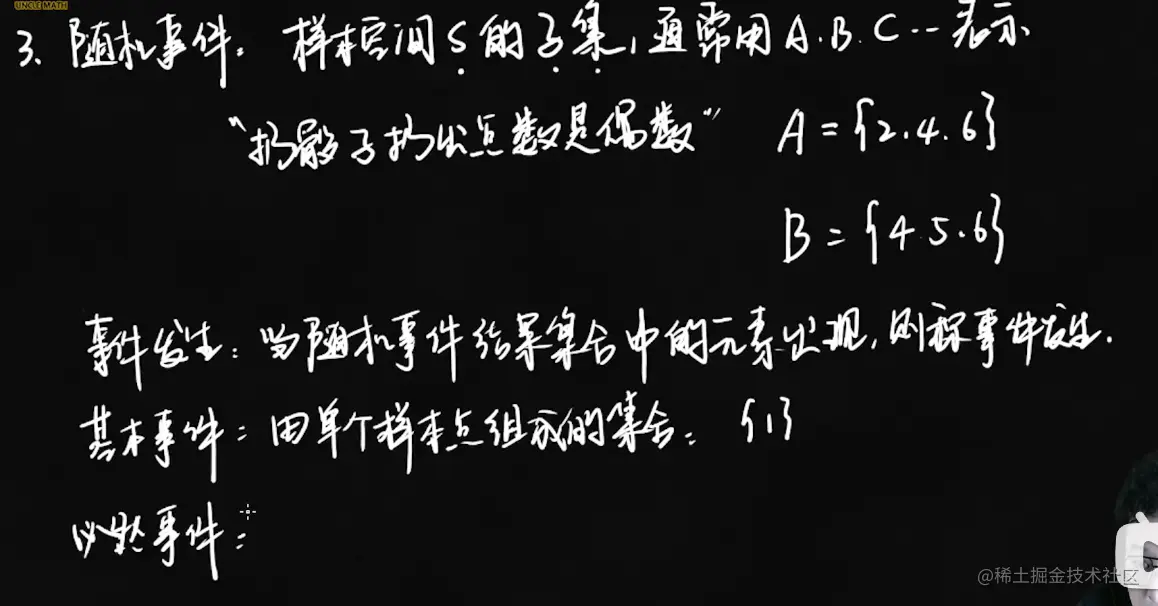 UNCLE MATH
3、随机事件。样本空间S的子集,通常用A.B.C…表示
"扔骰子扔出点数是偶数" A={2.4.6}
B={4.5.6}
事件发生:当随机事件结果集合中的元素出现,则称事件发生.
基本事件:由单个样本点组成的集合。{1}
必然事件:
@稀土掘金技术社区